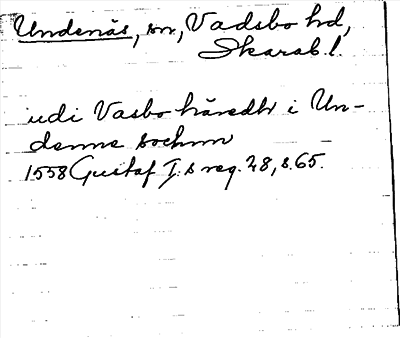 Undenäs, sn, Vadsbo hd,
Skarab. l.
udi Vasbo häredh i Un-
denne sochnn
1558 Gustaf I:s reg. 28, s. 65.